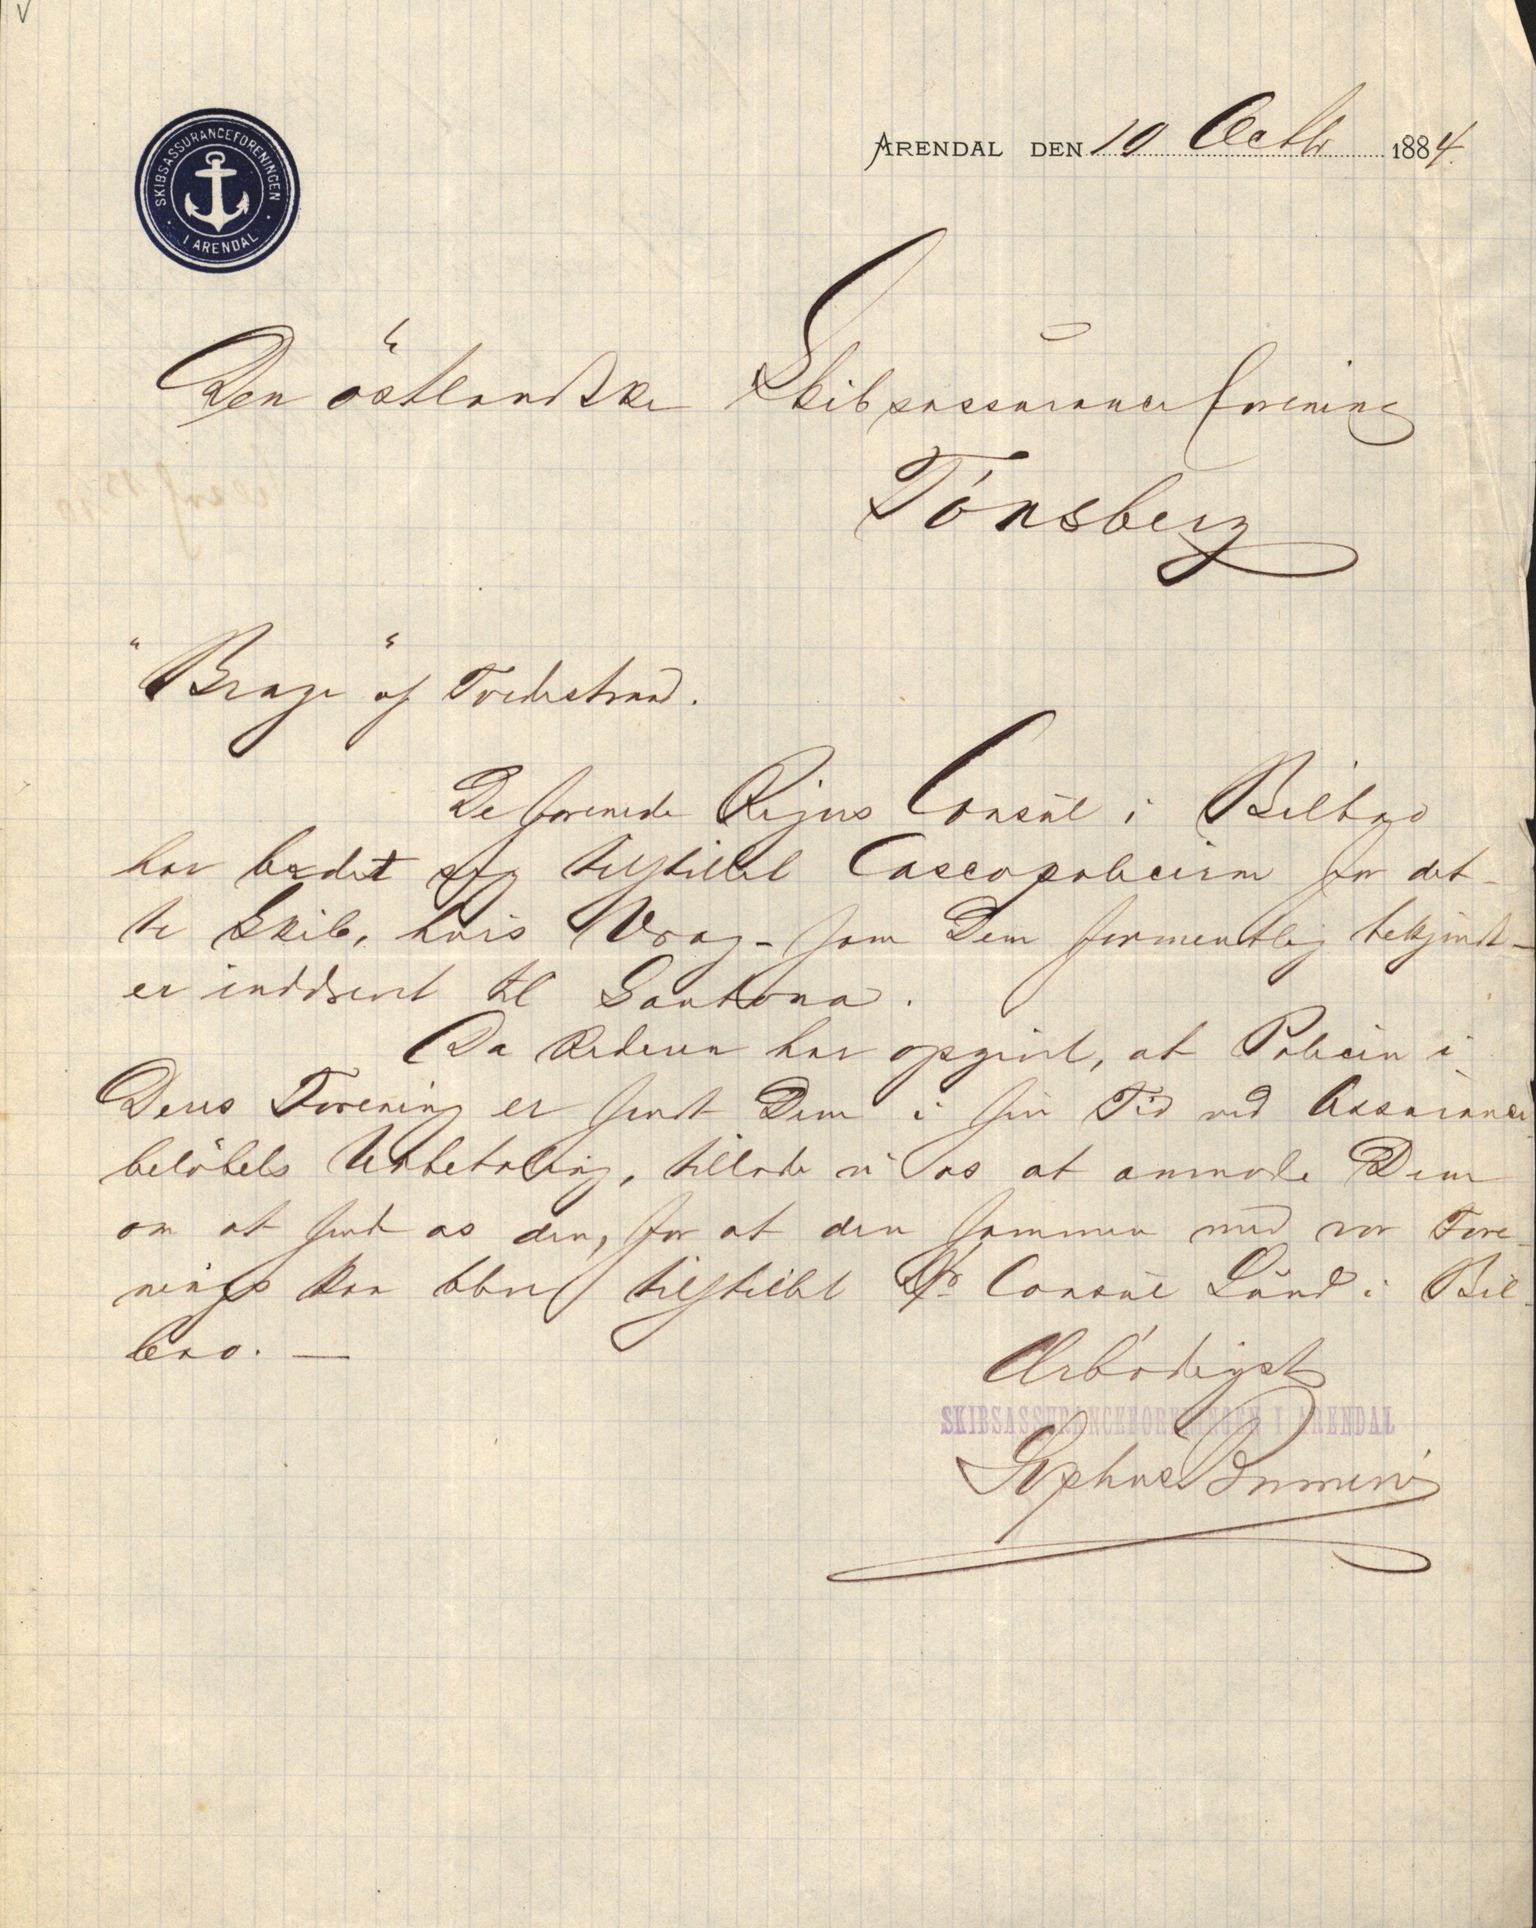 SKIBSASSURANCEFORENINGEN
· I ARENDAL ·
ARENDAL DEN 10 Octbr 1884.
Den östlandske Skibsassuranceforening
Tönsberg
"Brage" af Tvedestrand.
De forenede Rigers Consul i Bilbao
har bedet sig tilstillet Cascopolicerne for det-
te Skib, hvis Vrag - som Dem formentlig bekjendt -
er inddrevet til Santona.
Da Rederen har opgivet, at Policen i
Deres Forening er sendt Dem i sin Tid ved Assurance
belöbets Udbetaling, tillade vi os at anmode Dem
om at sende os den, for at den sammen med vor Fore-
nings kan blive tilstillet Hr Consul Lund i Bil-
bao. —
Ærbödigst
SKIBSASSURANCEFORENINGEN I ARENDAL
Sophus